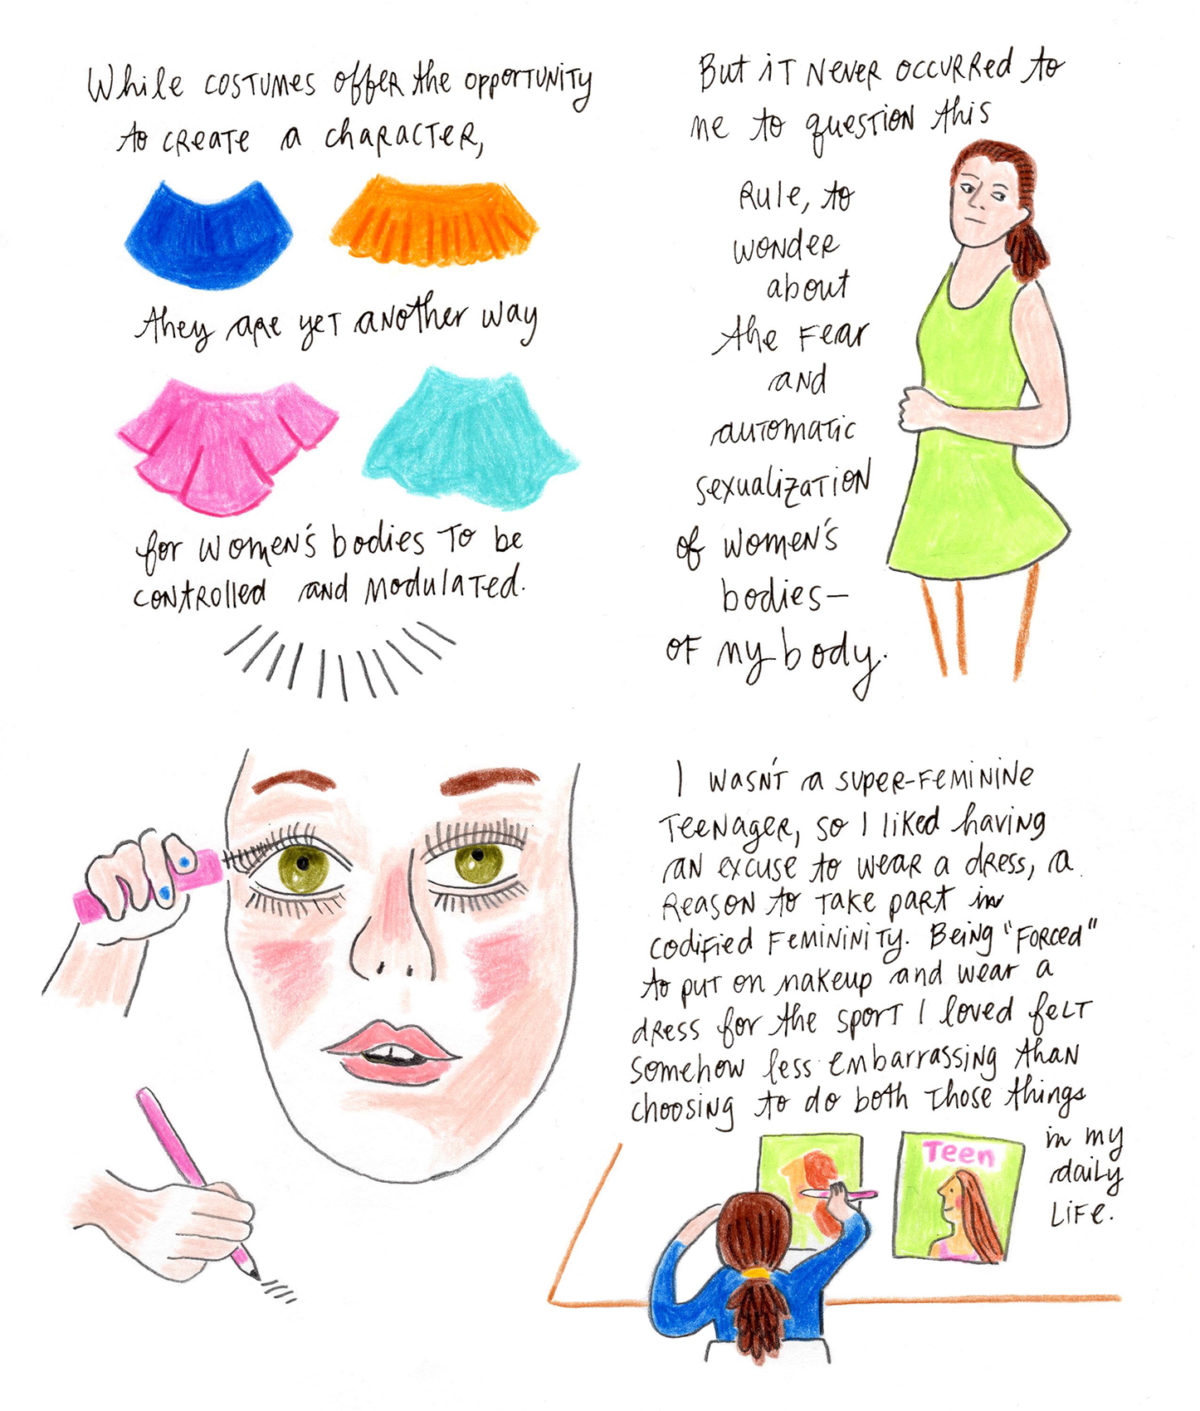 While costumes offer the opportunity
to create a character,
they are yet another way
for women's bodies to be
controlled and modulated.
But it never occurred to
me to question this
Rule, to
wonder
about
the fear
and
automatic
sexualization
of women's
bodies—
of my body.
I wasn't a super-feminine
teenager, so I liked having
an excuse to wear a dress, a
reason to take part in
codified femininity. Being "forced"
to put on makeup and wear a
dress for the sport I loved felt
somehow less embarrassing than
choosing to do both those things
in my
daily
life.
Teen